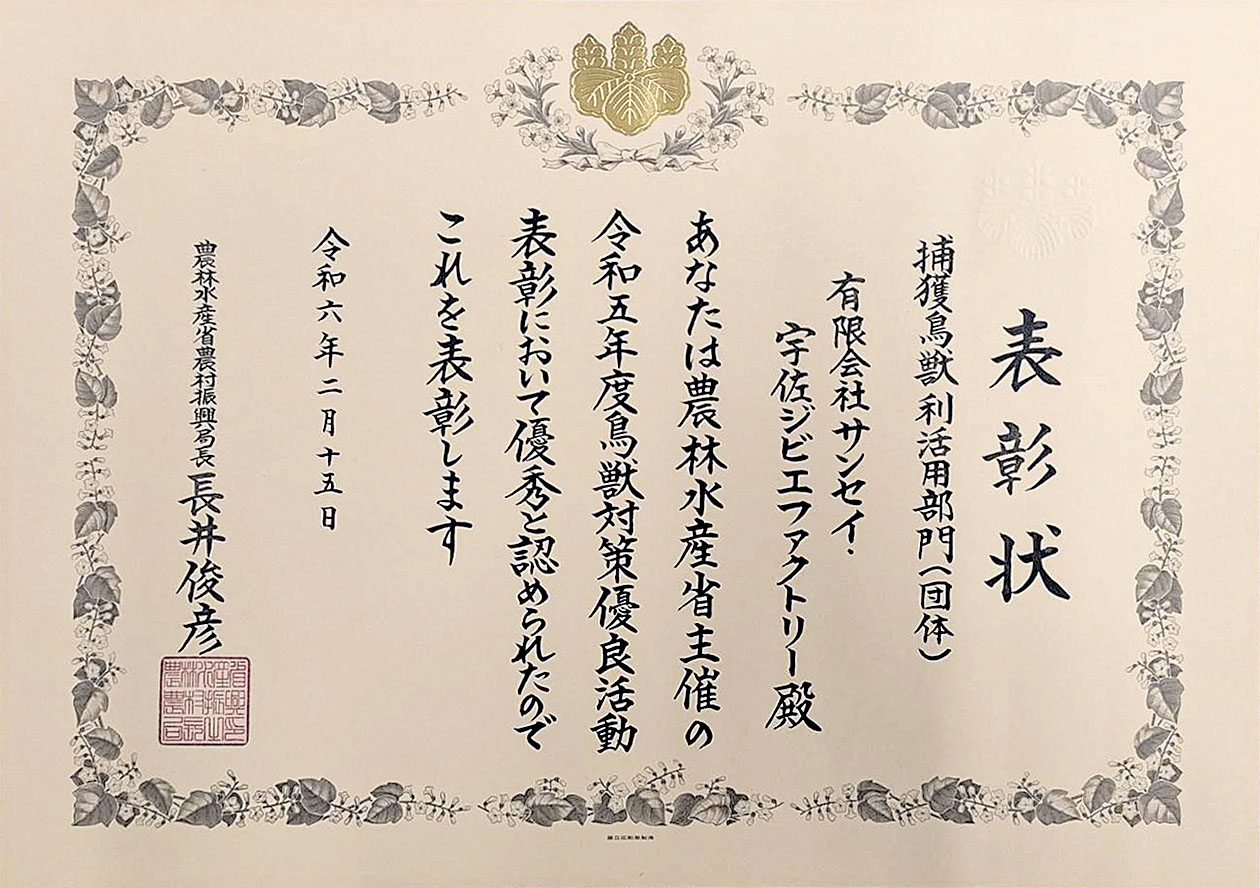 表彰状
捕獲鳥獣利活用部門（団体）
有限会社サンセイ・
宇佐ジビエファクトリー殿
あなたは農林水産省主催の
令和五年度鳥獣対策優良活動
表彰において優秀と認められたので
これを表彰します
令和六年二月十五日
農林水産省農村振興局長 長井俊彦